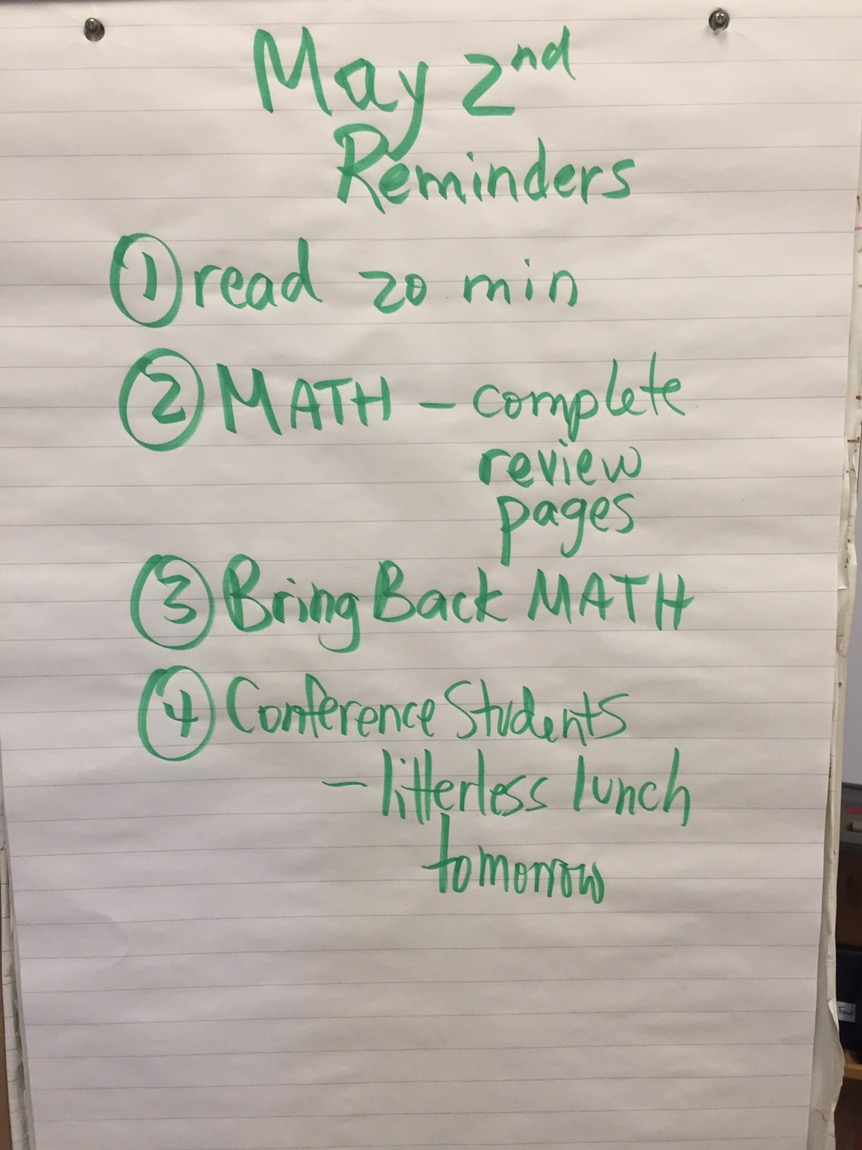 May 2nd
Reminders
① read 20 min
② MATH – complete
review
pages
③ Bring Back MATH
④ Conference Students
– litterless lunch
tomorrow